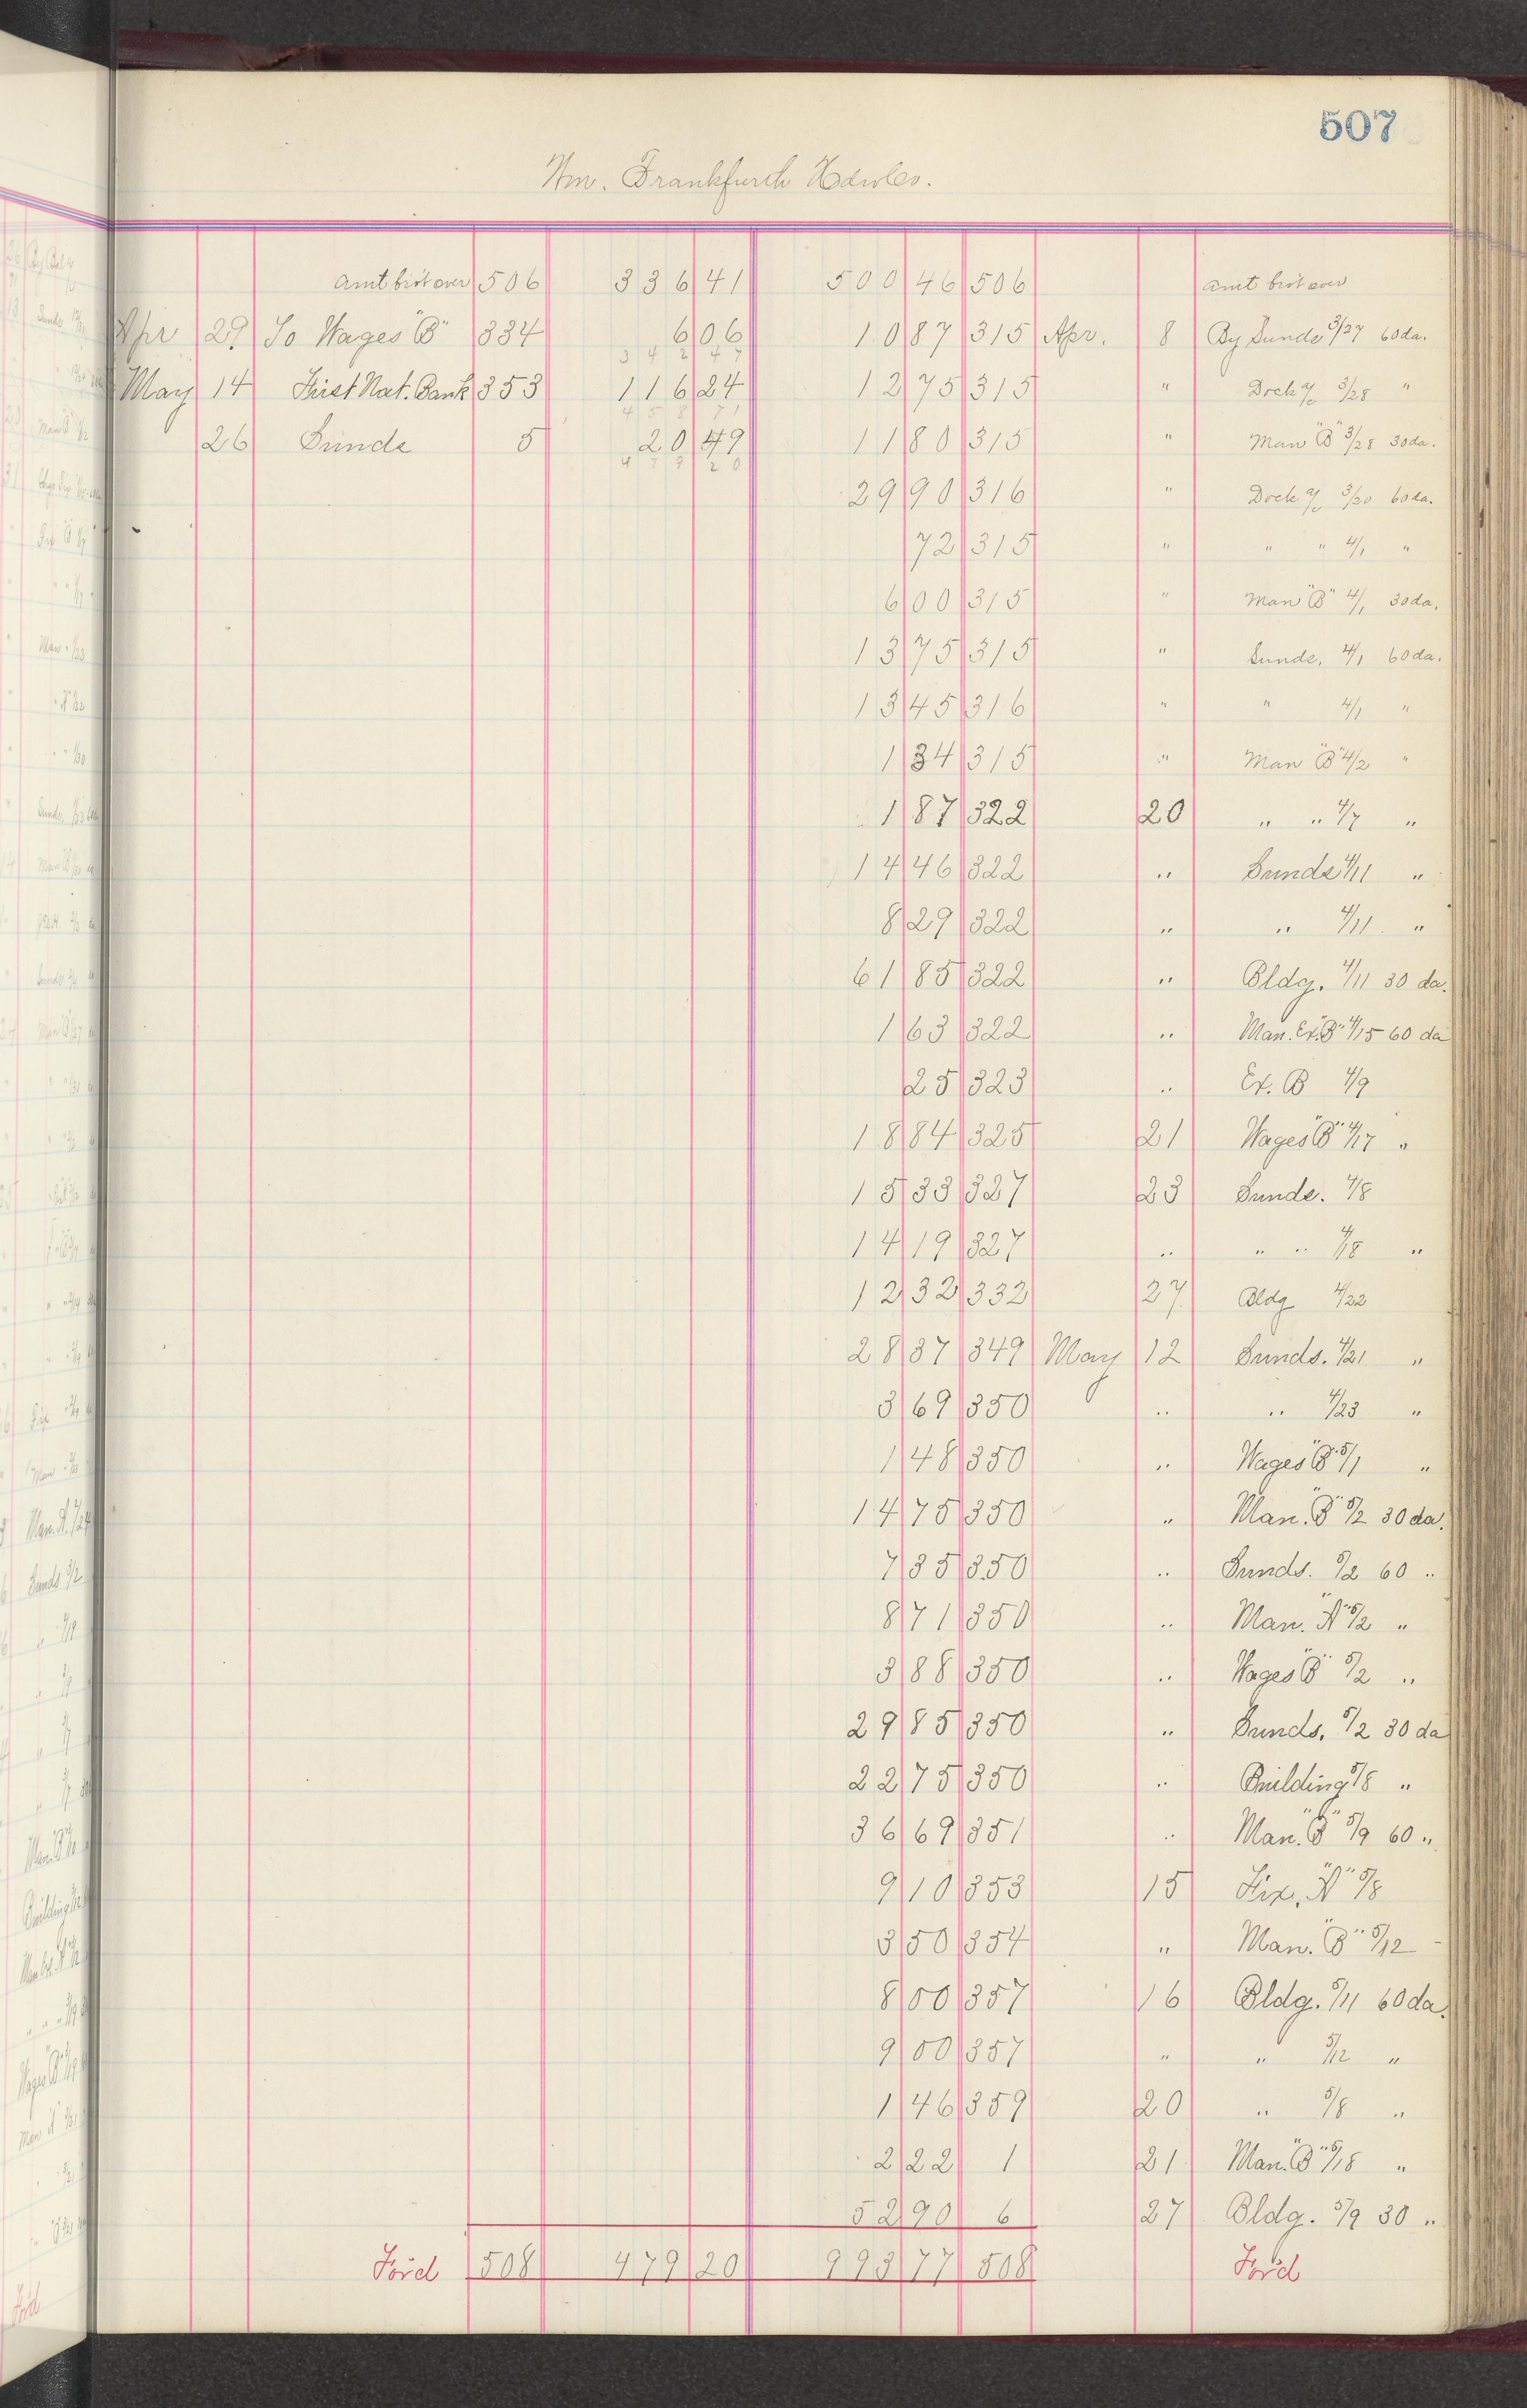 507
Wm. Frankfurth Hdw Co.
Amt brot over 506 336 41 500 46 506 Amt brot over
Apr 29 To Wages "B" 334 6 06 10 87 315 Apr. 8 By Sunds 3/27 60 da.
342 47
May 14 First Nat. Bank 353 116 24 12 75 315 " Dock a/c 3/28 "
458 71
26 Sunds 5 20 49 11 80 315 " Man "B" 3/28 30 da.
479 20
29 90 316 " Dock a/c 3/30 60 da.
72 315 " " " 4/1 "
6 00 315 " Man "B" 4/1 30 da.
13 75 315 " Sunds. 4/1 60 da.
13 45 316 " " 4/1 "
1 34 315 " Man "B" 4/2 "
1 87 322 20 " " 4/7 "
14 46 322 " Sunds 4/11 "
8 29 322 " " 4/11 "
61 85 322 " Bldg. 4/11 30 da.
1 63 322 " Man. Ex. "B" 4/15 60 da
25 323 " Ex. B 4/9
18 84 325 21 Wages "B" 4/17 "
15 33 327 23 Sunds. 4/8
14 19 327 " " " 4/18 "
12 32 332 27 Bldg 4/22
28 37 349 May 12 Sunds. 4/21 "
3 69 350 " " 4/23 "
1 48 350 " Wages "B" 5/1 "
14 75 350 " Man. "B" 5/2 30 da.
7 35 350 " Sunds. 5/2 60 "
8 71 350 " Man. "A" 5/2 "
3 88 350 " Wages "B" 5/2 "
29 85 350 " Sunds. 5/2 30 da
22 75 350 " Building 5/8 "
36 69 351 " Man. "B" 5/9 60 "
9 10 353 15 Fix. "A" 5/8
3 50 354 " Man. "B" 5/12
8 00 357 16 Bldg. 5/11 60 da.
9 00 357 " " 5/12 "
1 46 359 20 " 5/8 "
2 22 1 21 Man. "B" 5/18 "
52 90 6 27 Bldg. 5/9 30 "
For'd 508 479 20 993 77 508 For'd